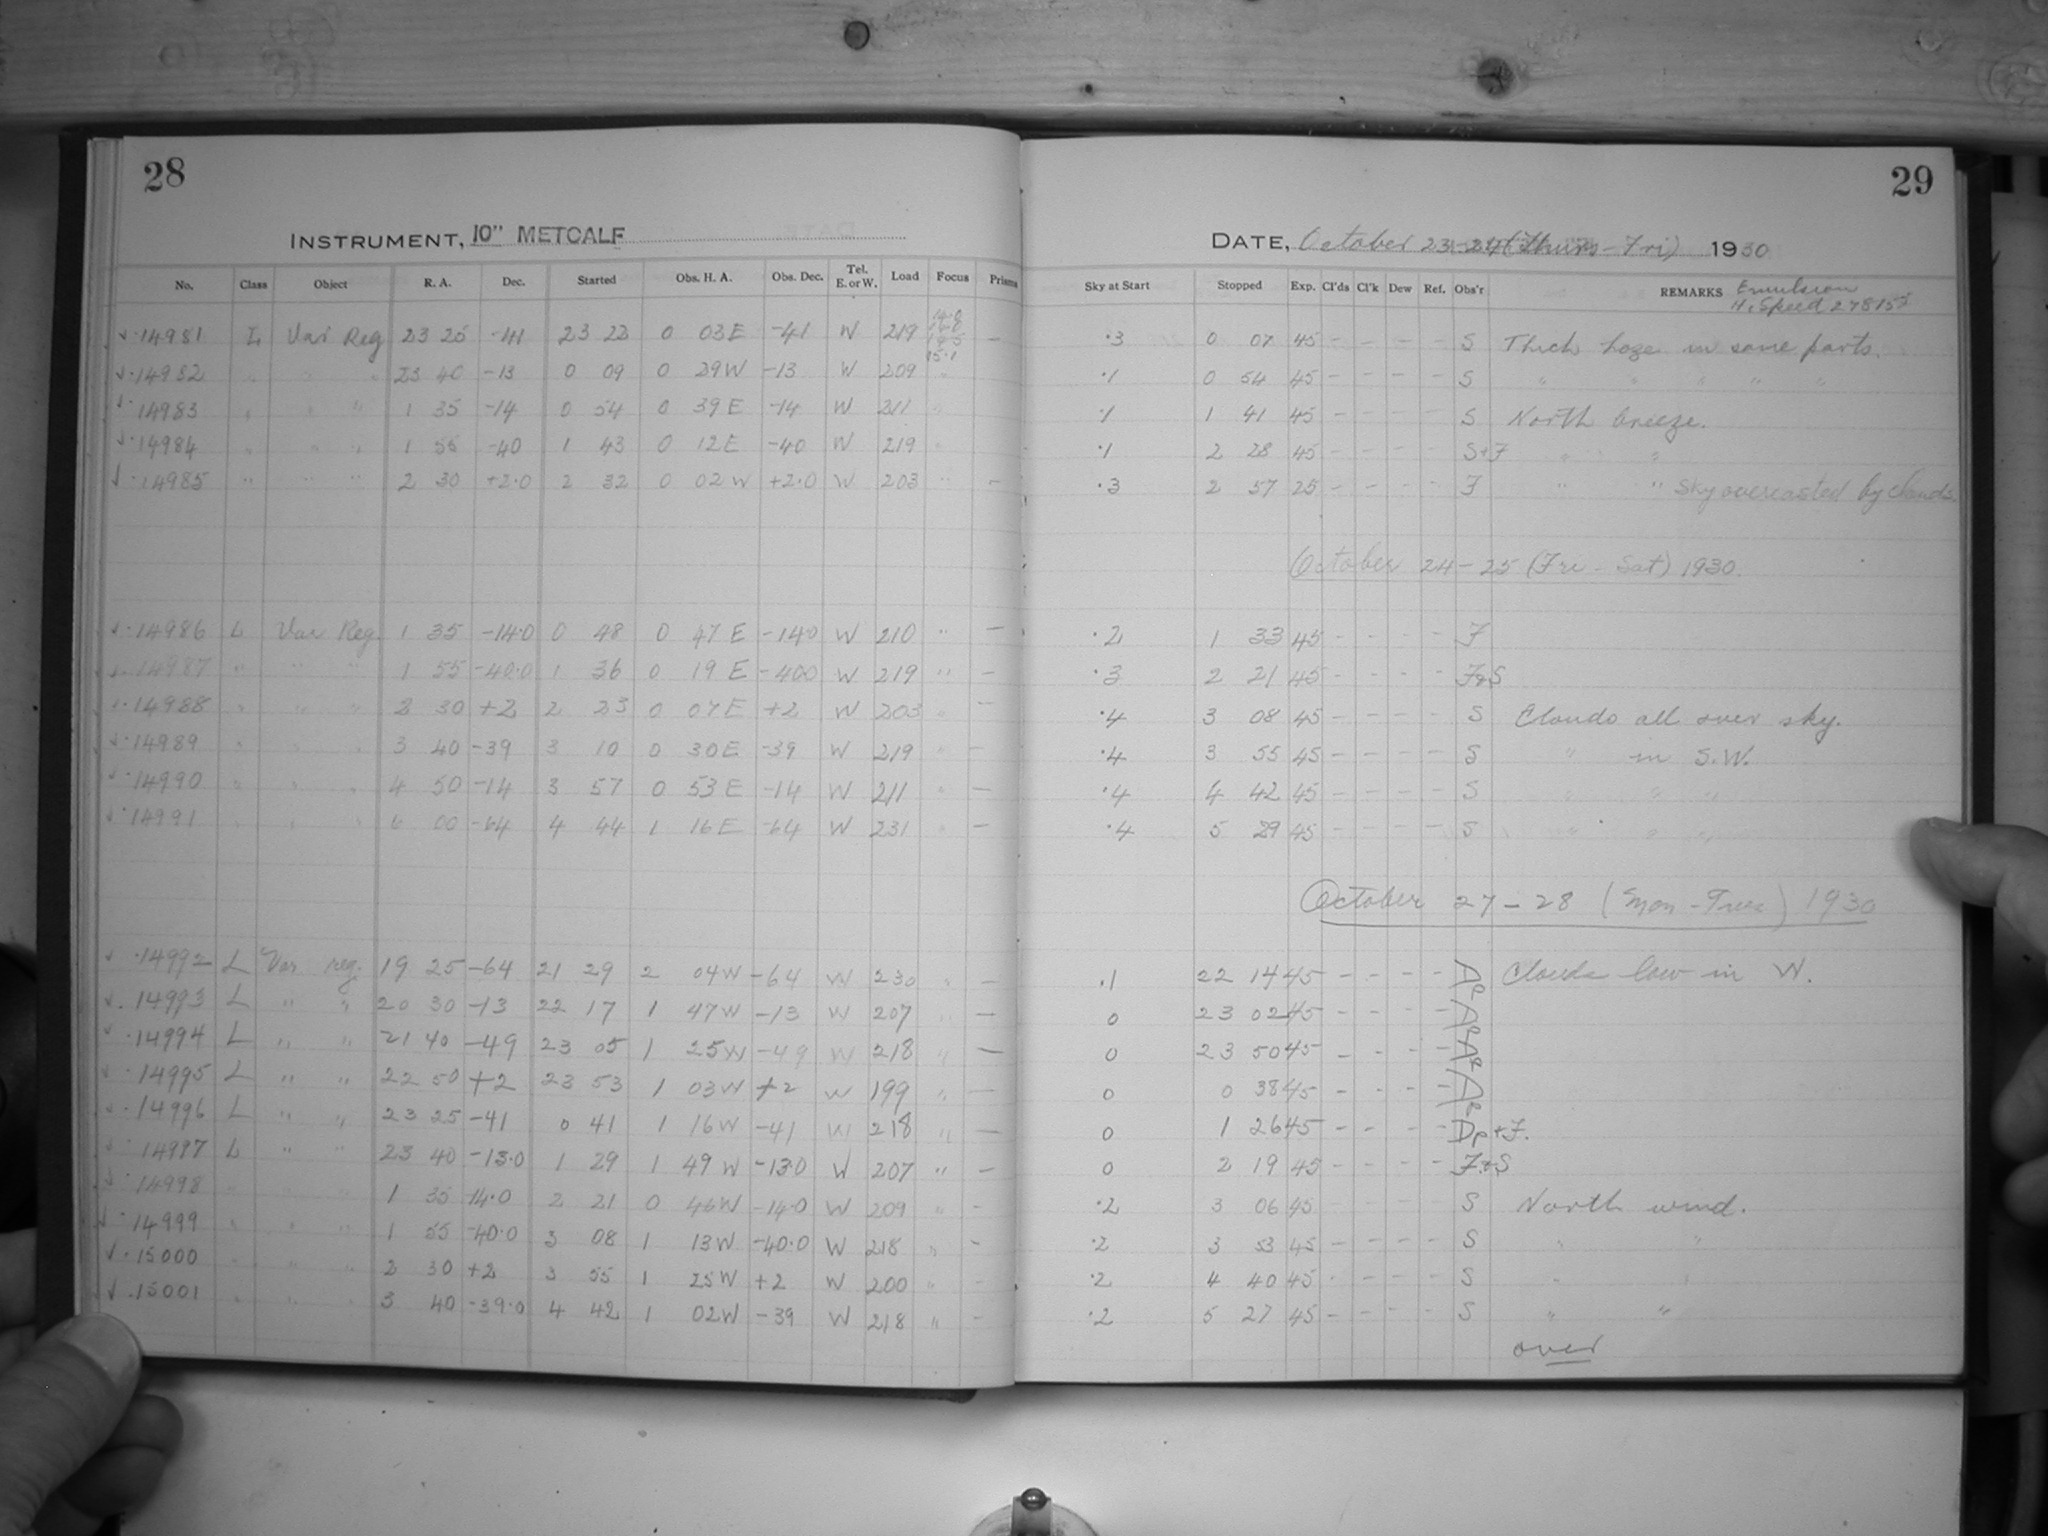 28
29
INSTRUMENT, 10" METCALF
DATE, October 23-24 (Thurs - Fri) 1930
No. Class Object R. A. Dec. Started Obs. H. A. Obs. Dec. Tel. E. or W. Load Focus Prisms Sky at Start Stopped Exp. Cl'ds Cl'k Dew Ref. Obs'r REMARKS Emulsion H. Speed 27815
14981 L Var Reg 23 25 -41 23 22 0 03 E -41 W 219 15.1 — .3 0 07 45 - - - - S Thick haze in some parts.
14982 " " " 23 40 -13 0 09 0 29 W -13 W 209 " .1 0 54 45 - - - - S " " " " "
14983 " " " 1 35 -14 0 54 0 39 E -14 W 211 " .1 1 41 45 - - - - S North breeze.
14984 " " " 1 55 -40 1 43 0 12 E -40 W 219 " .1 2 28 45 - - - - S+F " "
14985 " " " 2 30 +2.0 2 32 0 02 W +2.0 W 203 " — .3 2 57 25 - - - - F " " Sky overcasted by clouds.
October 24-25 (Fri - Sat) 1930.
14986 L Var Reg. 1 35 -14.0 0 48 0 47 E -14.0 W 210 " — .2 1 33 45 - - - - F
14987 " " " 1 55 -40.0 1 36 0 19 E -400 W 219 " — .3 2 21 45 - - - - F+S
14988 " " " 2 30 +2 2 23 0 07 E +2 W 203 " — .4 3 08 45 - - - - S Clouds all over sky.
14989 " " " 3 40 -39 3 10 0 30 E -39 W 219 " — .4 3 55 45 - - - - S " in S.W.
14990 " " " 4 50 -14 3 57 0 53 E -14 W 211 " — .4 4 42 45 - - - - S " " "
14991 " " " 6 00 -64 4 44 1 16 E -64 W 231 " — .4 5 29 45 - - - - S " " "
October 27-28 (Mon - Tues) 1930
14992 L Var reg. 19 25 -64 21 29 2 04 W -64 W 230 " — .1 22 14 45 - - - - Clouds low in W.
14993 L " " 20 30 -13 22 17 1 47 W -13 W 207 " — 0 23 02 45 - - - -
14994 L " " 21 40 -49 23 05 1 25 W -49 W 218 " — 0 23 50 45 - - - -
14995 L " " 22 50 +2 23 53 1 03 W +2 W 199 " — 0 0 38 45 - - - -
14996 L " " 23 25 -41 0 41 1 16 W -41 W 218 " — 0 1 26 45 - - - - Dp+F.
14997 L " " 23 40 -13.0 1 29 1 49 W -13.0 W 207 " — 0 2 19 45 - - - - F+S
14998 " " " 1 35 14.0 2 21 0 46 W -14.0 W 209 " - .2 3 06 45 - - - - S North wind.
14999 " " " 1 55 -40.0 3 08 1 13 W -40.0 W 218 " - .2 3 53 45 - - - - S " "
15000 " " " 2 30 +2 3 55 1 25 W +2 W 200 " - .2 4 40 45 - - - - S " "
15001 " " " 3 40 -39.0 4 42 1 02 W -39 W 218 " - .2 5 27 45 - - - - S " "
over